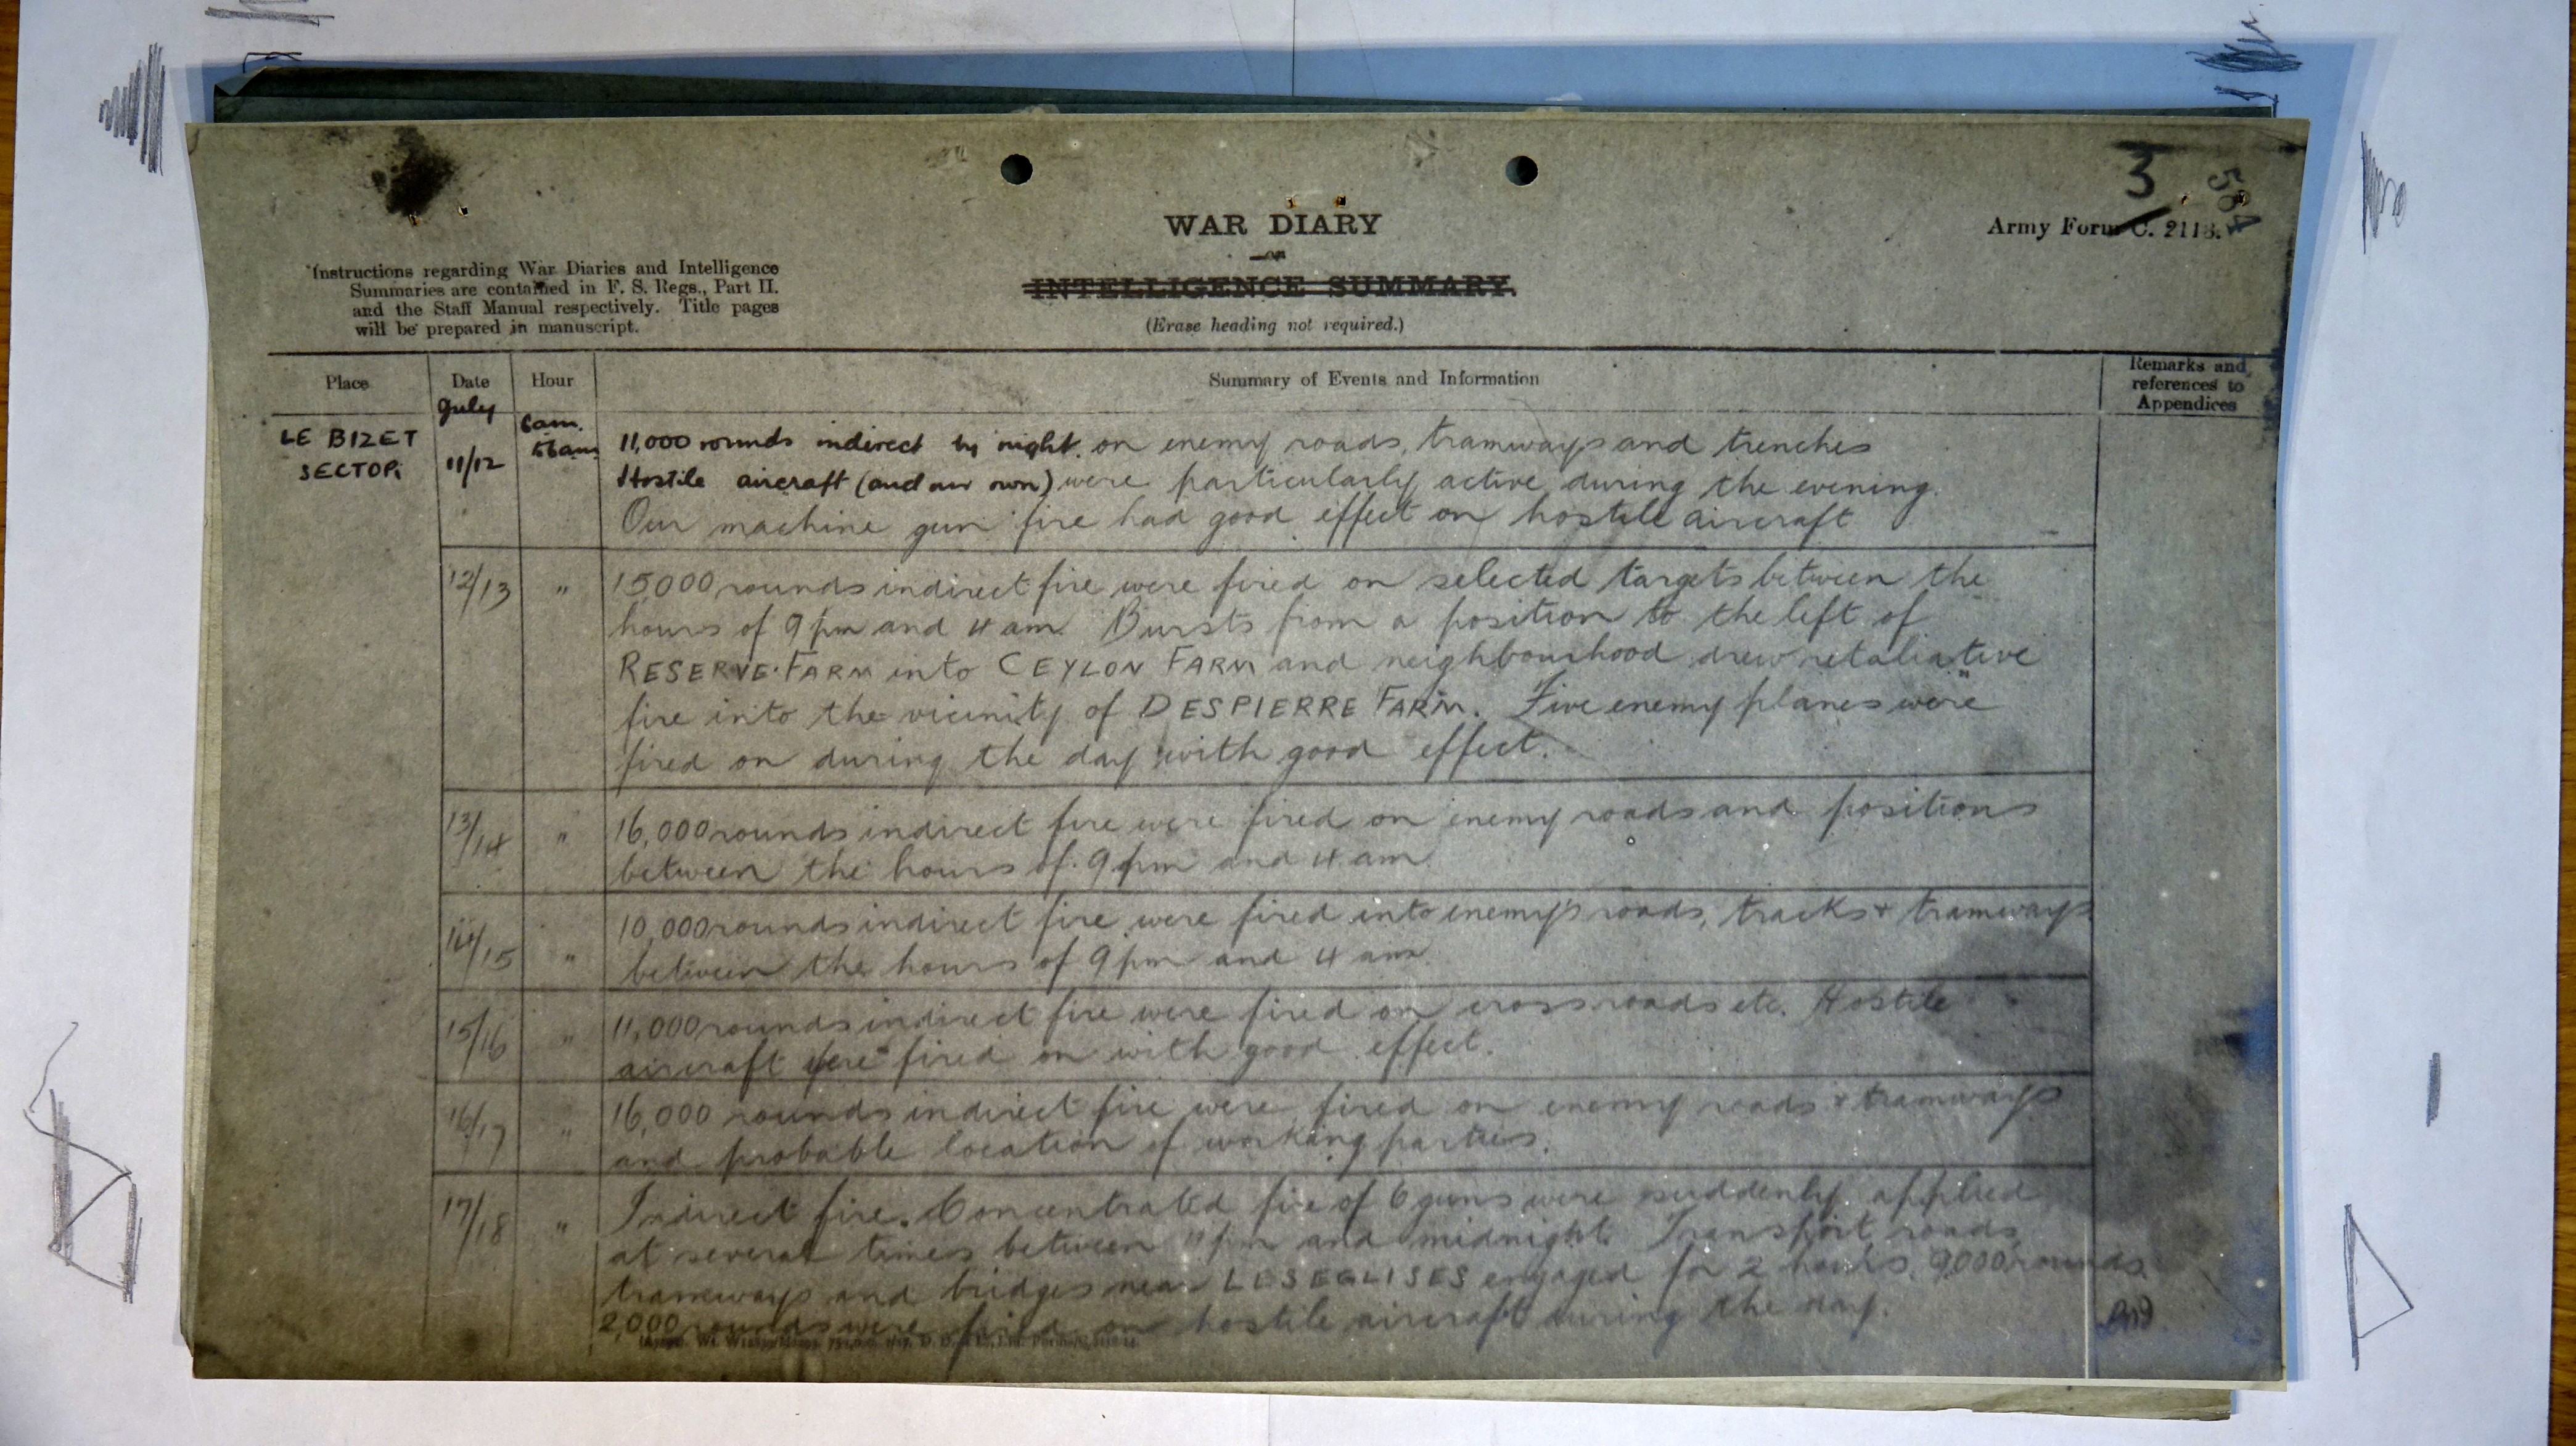 3
584
WAR DIARY
or
INTELLIGENCE SUMMARY.
(Erase heading not required.)
Army Form C. 2118.
Instructions regarding War Diaries and Intelligence
Summaries are contained in F. S. Regs., Part II.
and the Staff Manual respectively. Title pages
will be prepared in manuscript.
Place
Date
Hour
Summary of Events and Information
Remarks and
references to
Appendices
LE BIZET
SECTOR.
July
11/12
6am.
to 6am
11,000 rounds indirect by night. on enemy roads, tramways and trenches
Hostile aircraft (and our own) were particularly active during the evening.
Our machine gun fire had good effect on hostile aircraft
12/13 " 15,000 rounds indirect fire were fired on selected targets between the
hours of 9 pm and 4 am. Bursts from a position to the left of
RESERVE FARM into CEYLON FARM and neighbourhood drew retaliative
fire into the vicinity of DESPIERRE FARM. Five enemy planes were
fired on during the day with good effect.
13/14 " 16,000 rounds indirect fire were fired on enemy roads and positions
between the hours of 9 pm and 4 am.
14/15 " 10,000 rounds indirect fire were fired into enemy's roads, tracks + tramways
between the hours of 9 pm and 4 am.
15/16 " 11,000 rounds indirect fire were fired on cross roads etc. Hostile
aircraft were fired on with good effect.
16/17 " 16,000 rounds indirect fire were fired on enemy roads + tramways
and probable location of working parties.
17/18 " Indirect fire. Concentrated fire of 6 guns were suddenly applied
at several times between 11 pm and midnight. Transport roads,
tramways and bridges near LES EGLISES engaged for 2 hours. 9000 rounds
2,000 rounds were fired on hostile aircraft during the day.